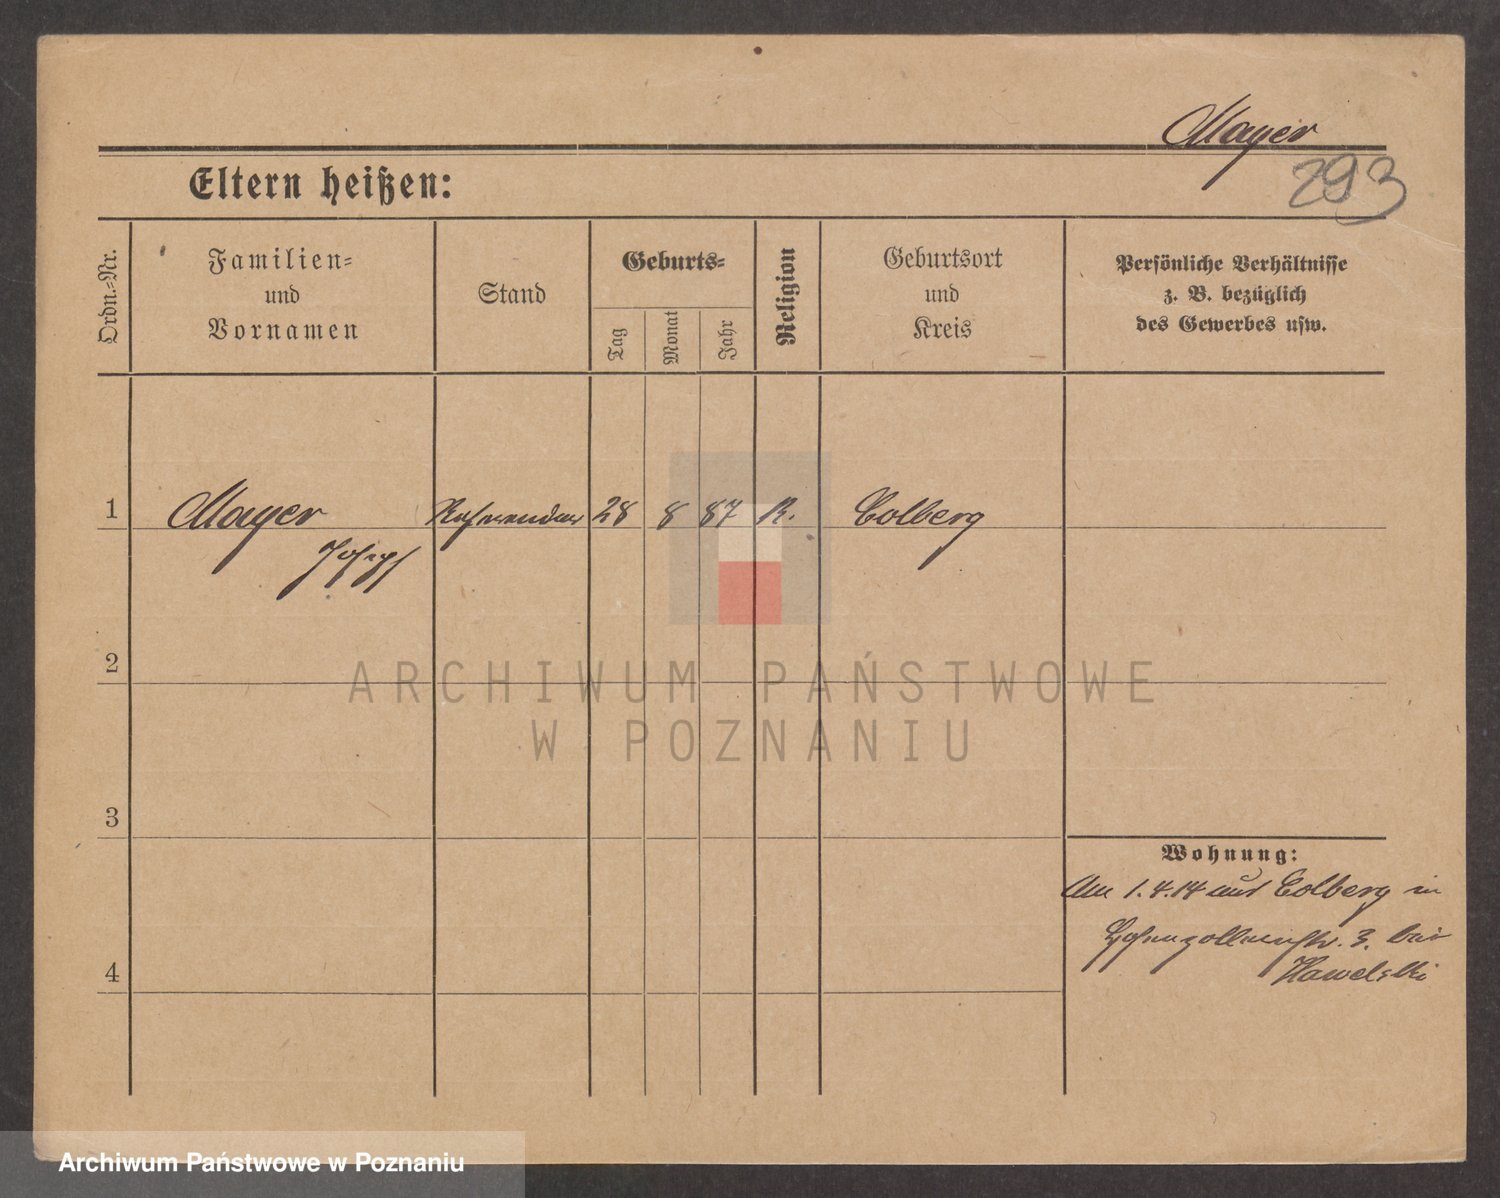 Mayer
293
Eltern heißen:
Ordn.-Nr.
Familien-
und
Vornamen
Stand
Geburts-
Tag
Monat
Jahr
Religion
Geburtsort
und
Kreis
Persönliche Verhältnisse
z. B. bezüglich
des Gewerbes usw.
1
Mayer
Josef
Referendar
28
8
87
K.
Colberg
2
3
4
Wohnung:
Am 1.4.14 aus Colberg in
Hohenzollernstr. 3. bei
Hawelski
ARCHIWUM PAŃSTWOWE
W POZNANIU
Archiwum Państwowe w Poznaniu